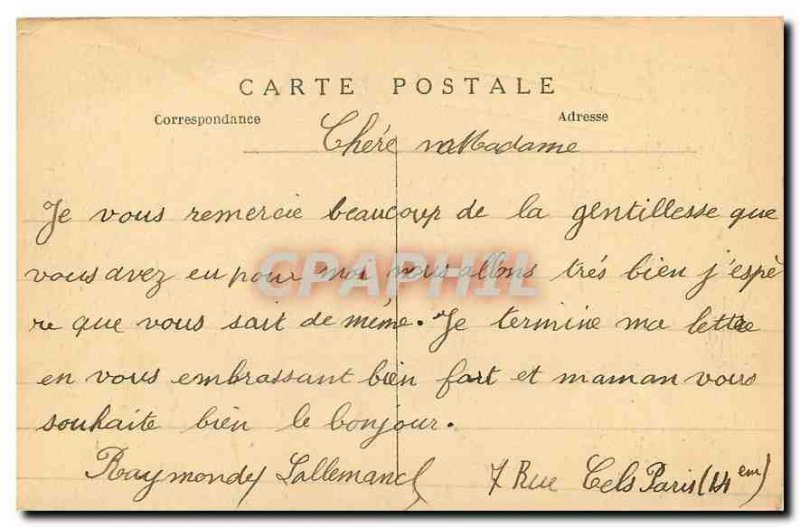 CARTE POSTALE
Correspondance Adresse
Chére Madame
Je vous remercie beaucoup de la gentillesse que
vous avez eu pour moi nous allons trés bien j'espè
re que vous sait de méme. Je termine ma lettre
en vous embrassant bien fort et maman vous
souhaite bien le bonjour.
Raymonde Lallemand 7 Rue Cels Paris (14em)
CPAPHIL